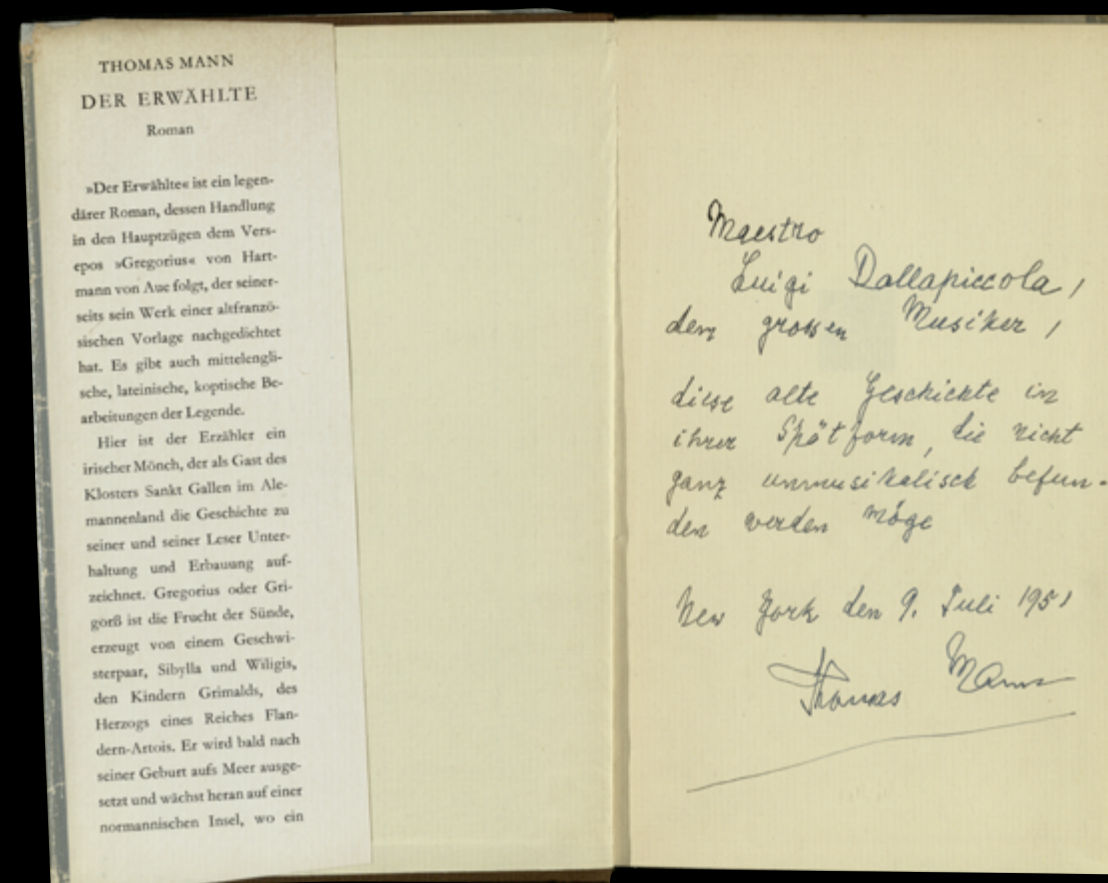 THOMAS MANN
DER ERWÄHLTE
Roman
»Der Erwählte« ist ein legen-
därer Roman, dessen Handlung
in den Hauptzügen dem Vers-
epos »Gregorius« von Hart-
mann von Aue folgt, der seiner-
seits sein Werk einer altfranzö-
sischen Vorlage nachgedichtet
hat. Es gibt auch mittelengli-
sche, lateinische, koptische Be-
arbeitungen der Legende.
Hier ist der Erzähler ein
irischer Mönch, der als Gast des
Klosters Sankt Gallen im Ale-
mannenland die Geschichte zu
seiner und seiner Leser Unter-
haltung und Erbauung auf-
zeichnet. Gregorius oder Gri-
gorß ist die Frucht der Sünde,
erzeugt von einem Geschwi-
sterpaar, Sibylla und Wiligis,
den Kindern Grimalds, des
Herzogs eines Reiches Flan-
dern-Artois. Er wird bald nach
seiner Geburt aufs Meer ausge-
setzt und wächst heran auf einer
normannischen Insel, wo ein
Maestro
Luigi Dallapiccola,
dem grossen Musiker,
diese alte Geschichte in
ihrer Spätform, die nicht
ganz unmusikalisch befun-
den werden möge
New York den 9. Juli 1951
Thomas Mann